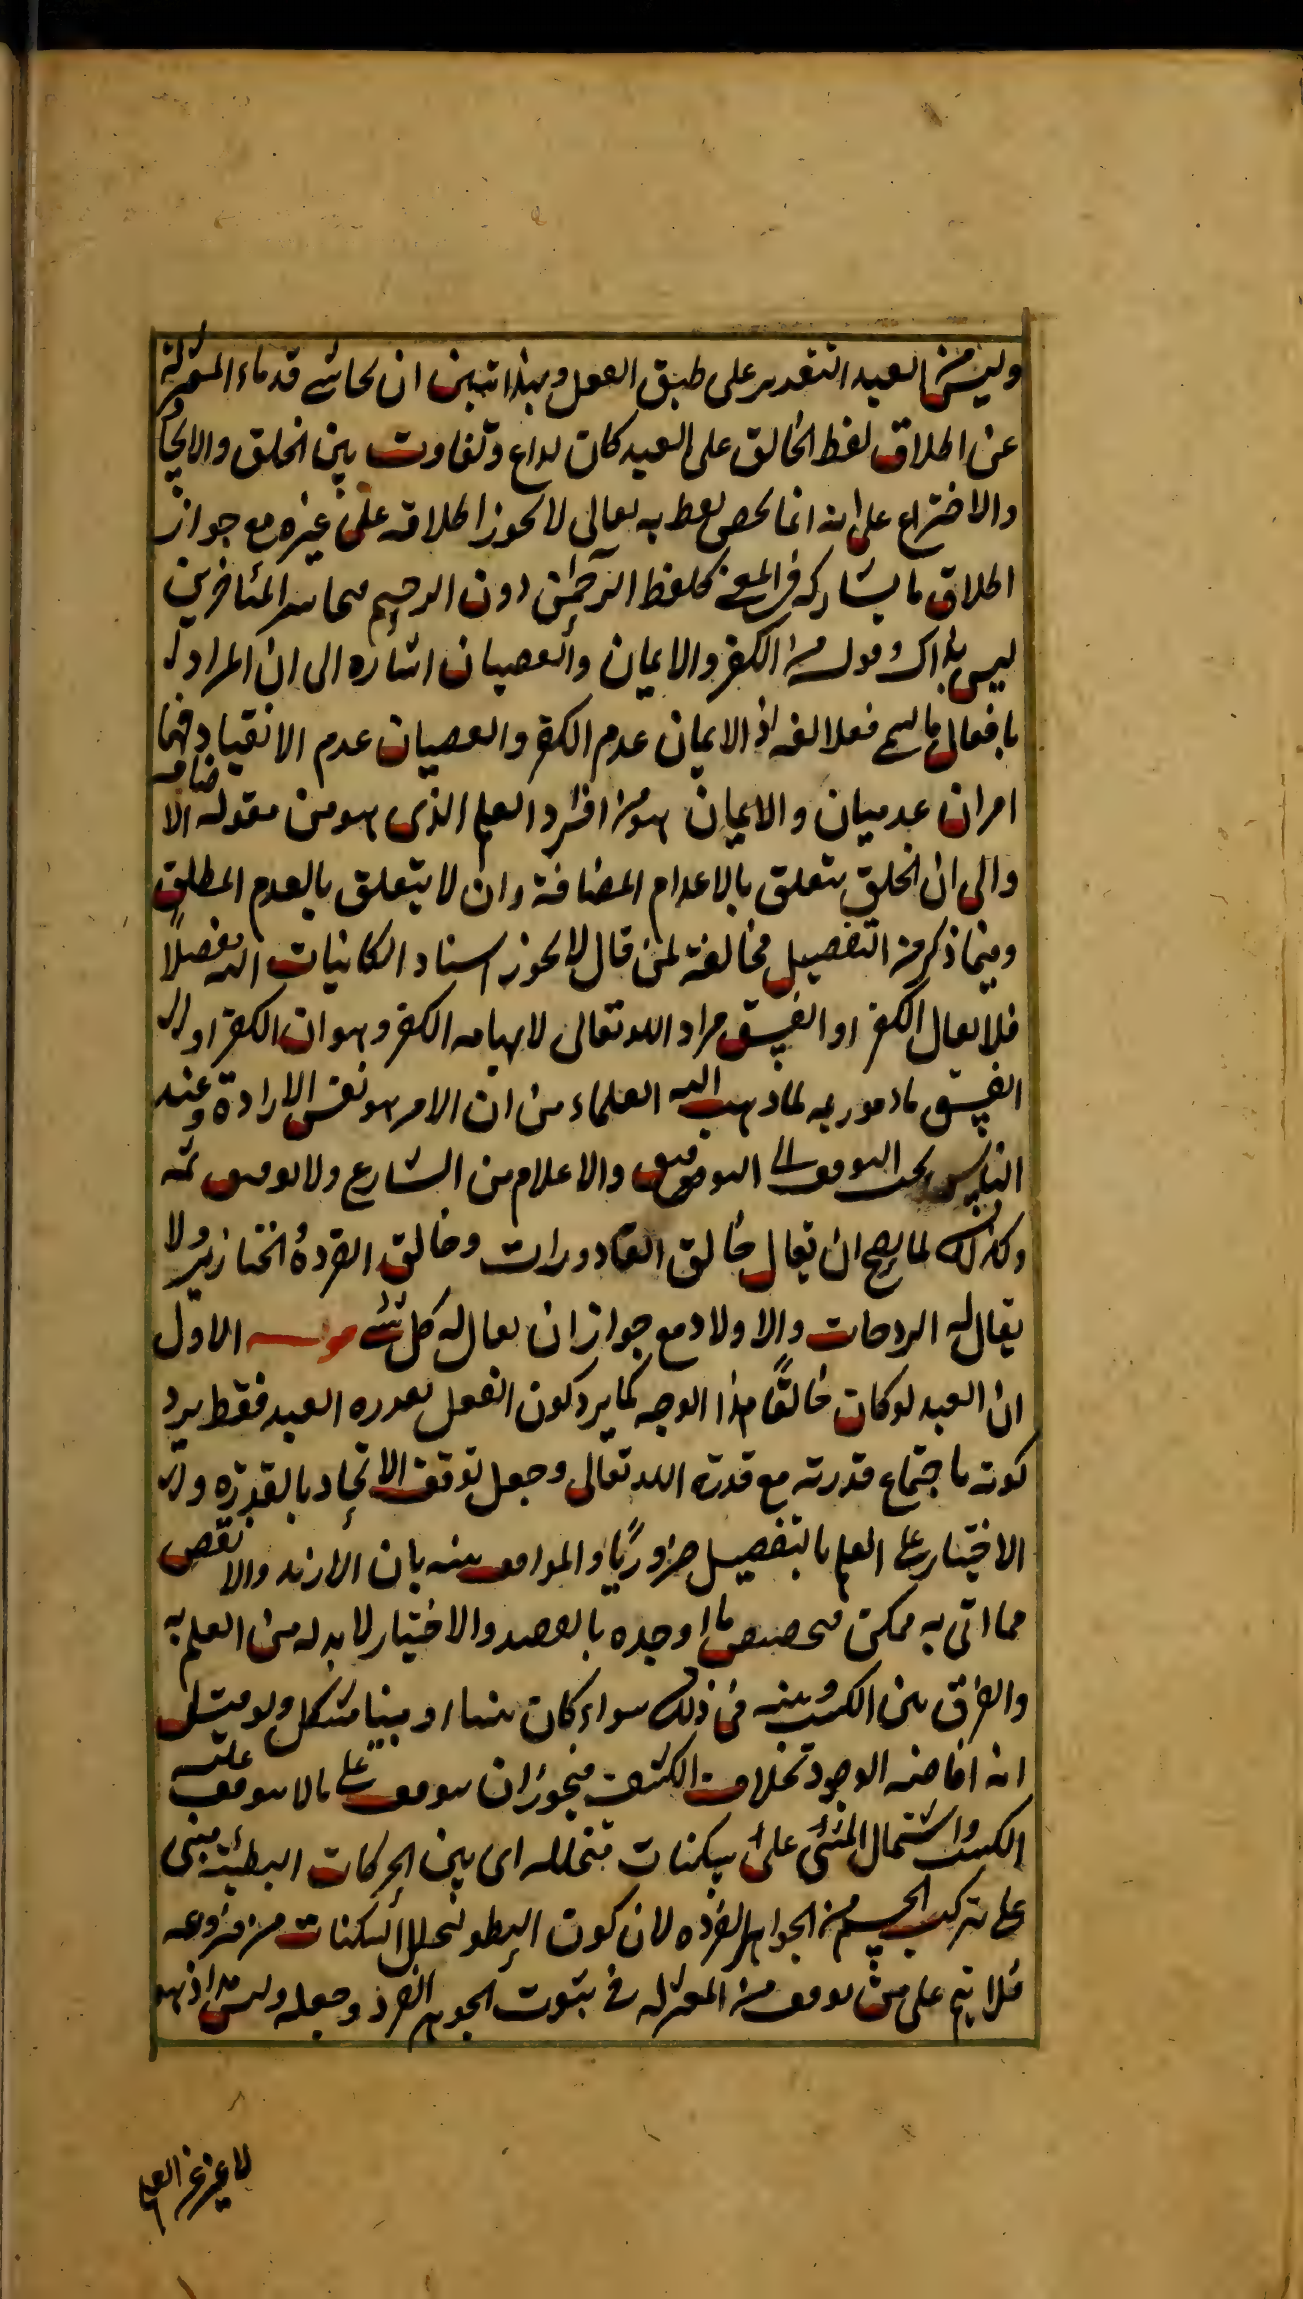 وليس من العبد التقدير على طبق الفعل وبهذا تبين ان تحاشي قدماء المعتزلة
عن اطلاق لفظ الخالق على العبد كان لداع وتفاوت بين الخلق والايجاد
والاختراع على انه انما يخص لفظ به تعالى لا يجوز اطلاقه على غيره مع جواز
اطلاق ما يشاركه في المعنى كلفظ الرحمن دون الرحيم المتأخرين
ليس بذاك وقوله من الكفر والايمان والعصيان اشاره الى ان المراد
بافعال ما يسمى فعلا لغه اذ الايمان عدم الكفر والعصيان عدم الانقياد فهما
امران عدميان والايمان هو من افراد العلم الذى هو من مقوله الاضافه
والى ان الخلق يتعلق بالاعدام المضافة وان لا يتعلق بالعدم المطلق
وفيما ذكر من التفصيل مخالفة لمن قال لا يجوز اسناد الكائنات اليه مفصلاً
فلا يقال الكفر او الفسق مراد الله تعالى لايهامه الكفر وهو ان الكفر او
الفسق مامور به لما ذهب اليه العلماء من ان الامر هو نفس الارادة وعند
التوقف الى التوقيف والاعلام من الشارع ولا توقيف ثمه
وكذلك لما يصح ان يقال خالق القاذورات وخالق القردة الخنازير ولا
يقال له الزوجات والاولاد مع جواز ان يقال له كل شئ قوله الاول
ان العبد لو كان خالقاً هذا الوجه كما يرد كون الفعل بقدره العبد فقط يرد
كونه باجتماع قدرته مع قدرة الله تعالى وجعل توقف الايجاد بالقدرة و
الاختيار على العلم بالتفصيل ضرورياً والمواقف بينه بان الازيد والانقص
مما اتى به ممكن فتخصيص ما اوجده بالقصد والاختيار لا بد له من العلم به
والفرق بين الكسب وبينه فى ذلك سواء كان بينا او مبينا مشكل ولو قيل
انه افاضه الوجود بخلاف الكسب فيجوز ان يتوقف على ما لا يتوقف عليه
الكسب واشتمال المشى على سكنات متخلله اى بين الحركات البطيئة مبنى
على تركب الجسم من الجواهر الفرده لان كون البطو لتخلل السكنات من فروعه
فلا يتم على من توقف من المعتزله فى ثبوت الجوهر الفرد وجعله وليس هذا ذهو